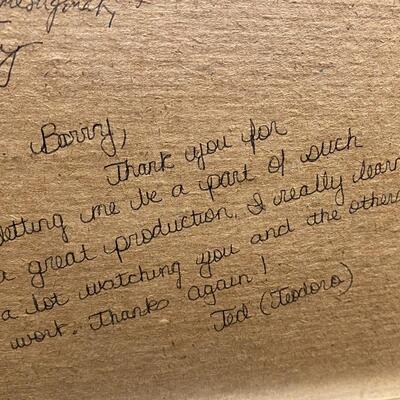 Barry,
Thank you for
letting me be a part of such
a great production. I really learn
a lot watching you and the others
work. Thanks again!
Ted (Teodoro)